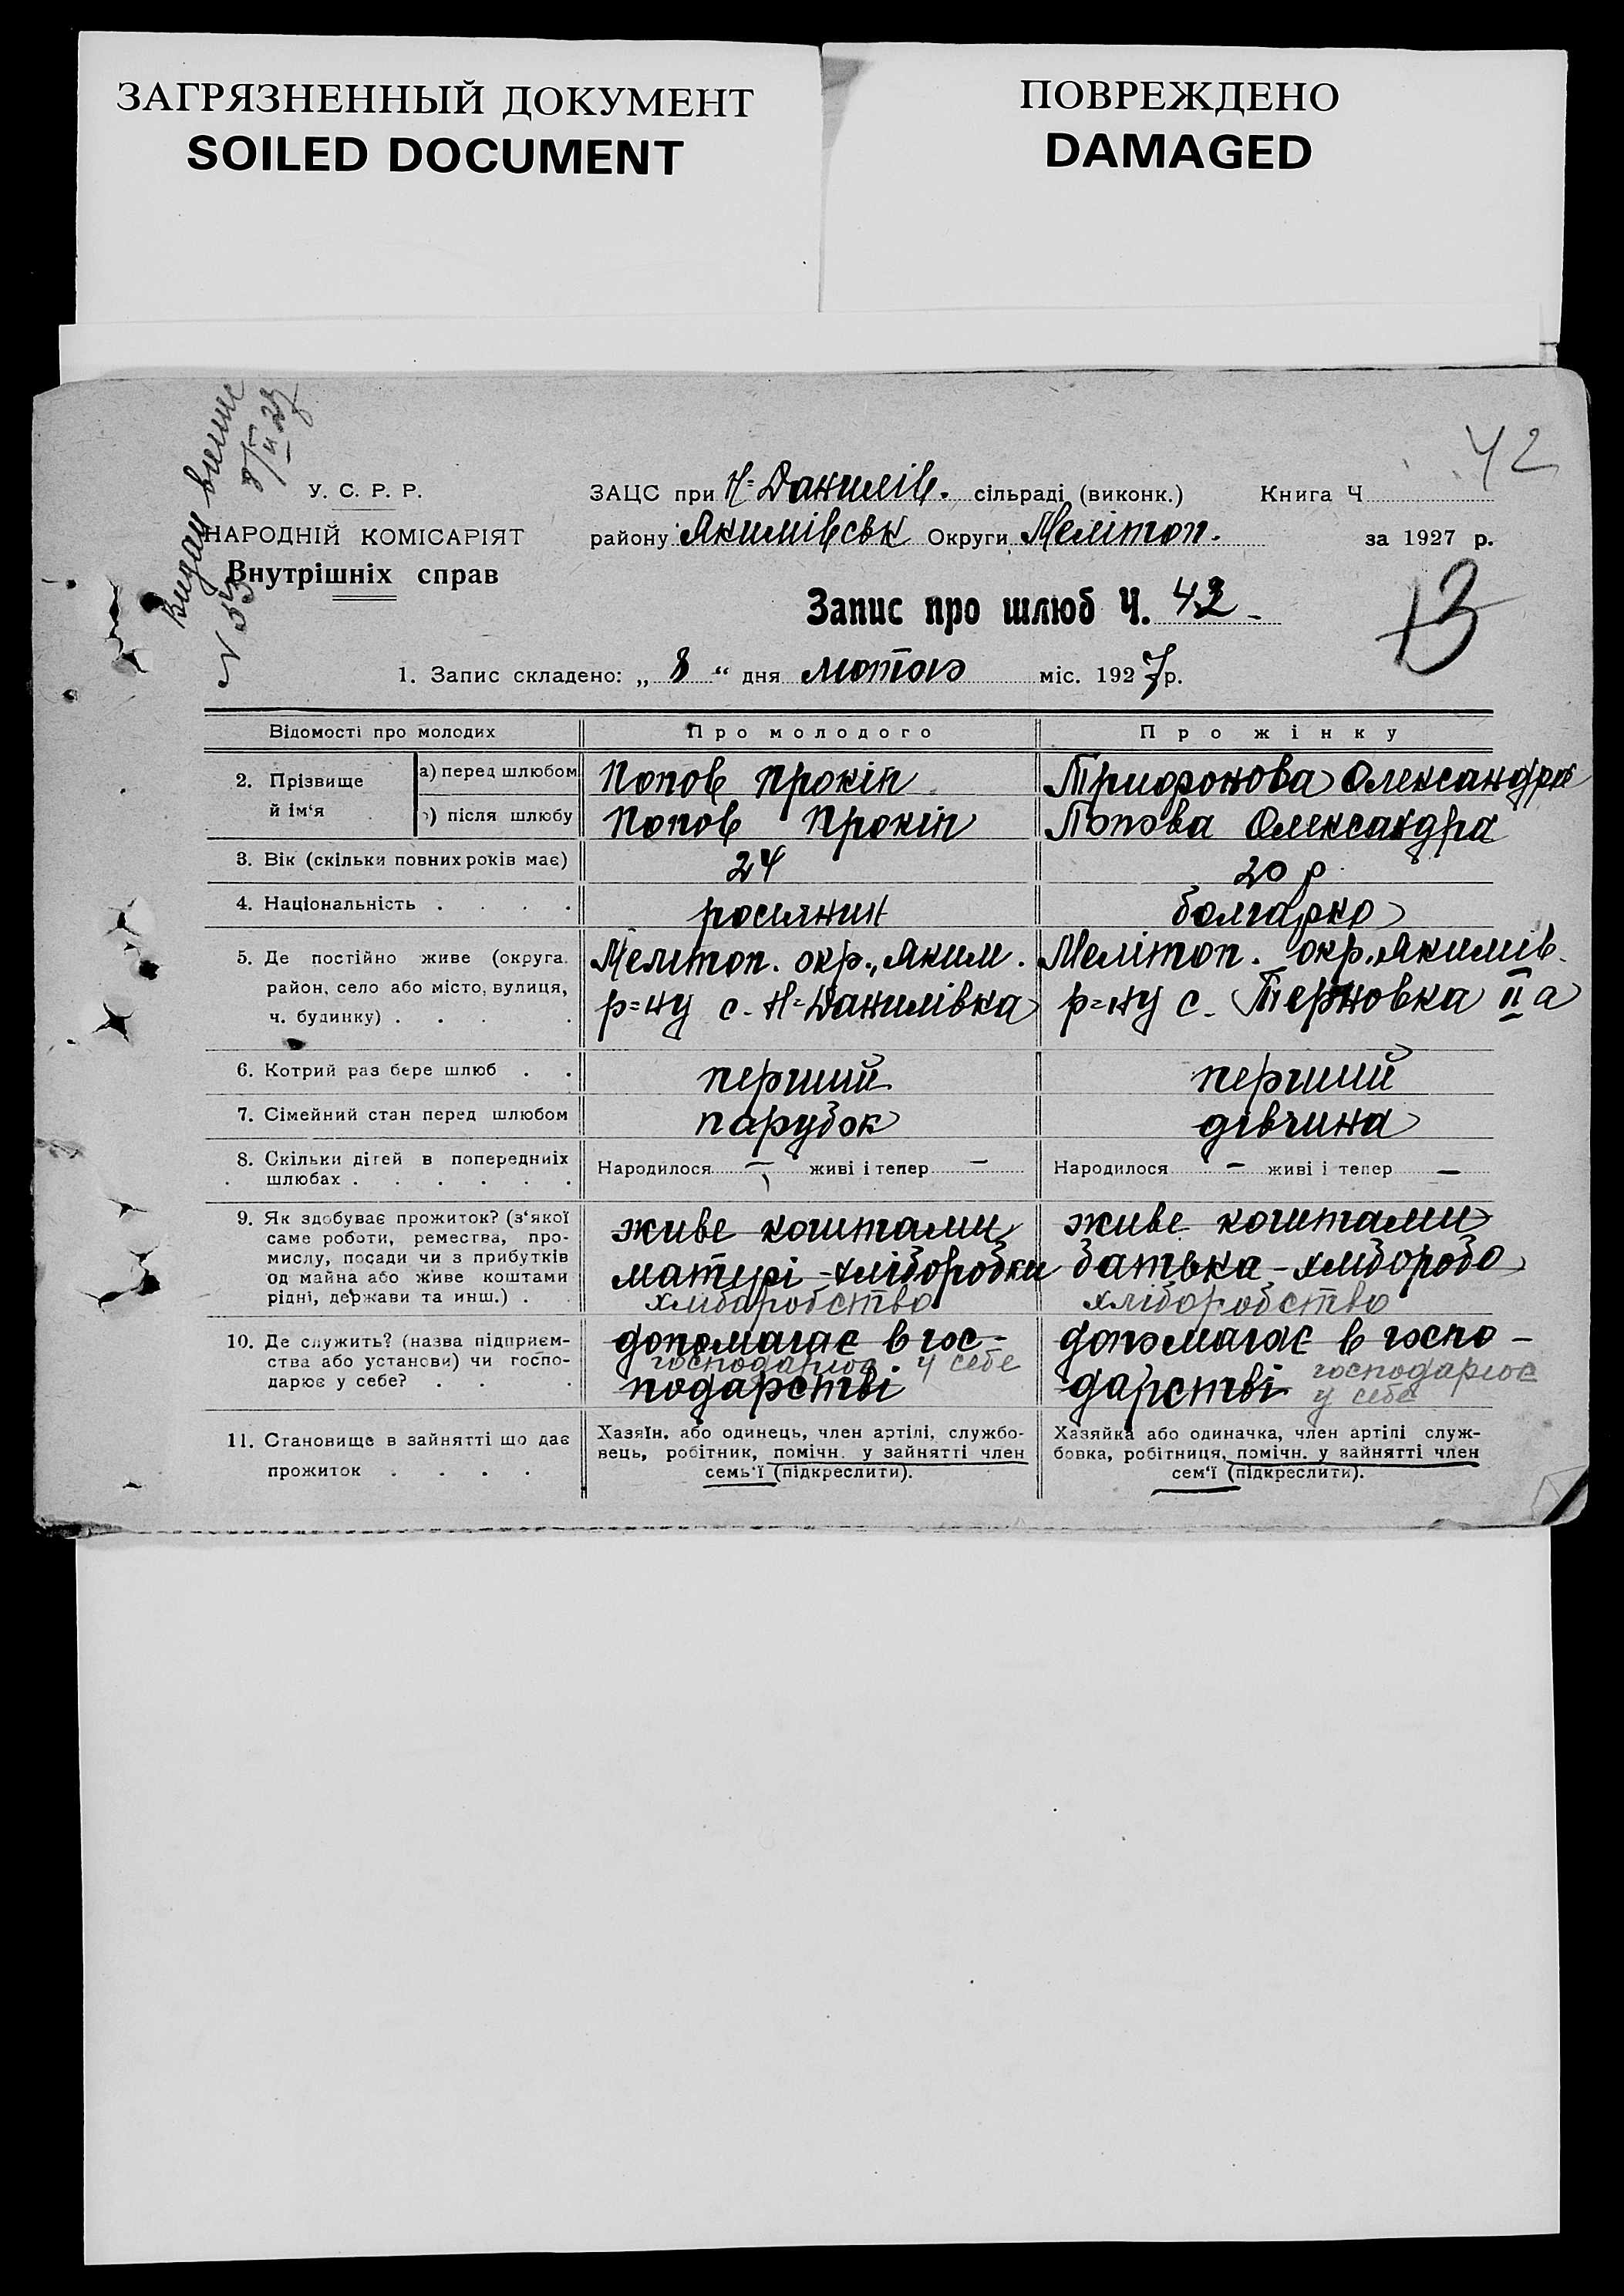 ЗАГРЯЗНЕННЫЙ ДОКУМЕНТ
SOILED DOCUMENT
ПОВРЕЖДЕНО
DAMAGED
42
У. С. Р. Р.
НАРОДНІЙ КОМІСАРІЯТ
Внутрішніх справ
ЗАЦС при Н=Данилів. сільраді (виконк.) Книга Ч
району Якимівськ Округи Мелітоп. за 1927 р.
Запис про шлюб Ч. 42
13
1. Запис складено: „ 8 “ дня лютого міс. 1927 р.
Відомості про молодих Про молодого Про жінку
2. Прізвище й ім‘я
а) перед шлюбом Попов Прокіп Трифонова Олександра
б) після шлюбу Попов Прокіп Попова Олександра
3. Вік (скільки повних років має) 24 20 р.
4. Національність . . . . росіянин болгарка
5. Де постійно живе (округа, Мелітоп. окр., Яким. Мелітоп. окр. Якимів.
район, село або місто, вулиця, р=ну с. Н=Данилівка р=ну с. Терновка II а
ч. будинку) . . . .
6. Котрий раз бере шлюб . . перший перший
7. Сімейний стан перед шлюбом парубок дівчина
8. Скільки дітей в попередниіх Народилося — живі і тепер — Народилося — живі і тепер —
шлюбах . . . . . .
9. Як здобуває прожиток? (з‘якої живе коштами живе коштами
саме роботи, ремества, про-
мислу, посади чи з прибутків матері - хліборобки батька - хлібороба
од майна або живе коштами
рідні, держави та инш.) . . хліборобство хліборобство
10. Де служить? (назва підприєм- допомагає в гос- допомагає в госпо-
ства або установи) чи госпо- господарює у себе господарює
дарює у себе? . . . подарстві дарстві у себе
11. Становище в зайнятті що дає Хазяїн. або одинець, член артілі, службо- Хазяйка або одиначка, член артілі служ-
прожиток . . . . вець, робітник, помічн. у зайнятті член бовка, робітниця, помічн. у зайнятті член
семь‘ї (підкреслити). сем‘ї (підкреслити).